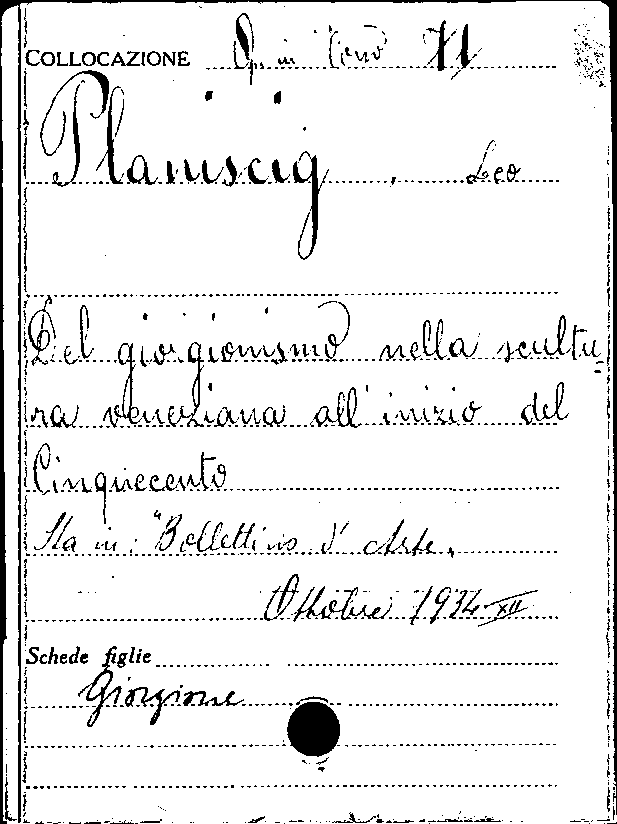 COLLOCAZIONE Op. in Cons XI
Planiscig, Leo
Del giorgionismo nella scultu
ra veneziana all'inizio del
Cinquecento
Sta in: "Bollettino d'Arte,
Ottobre 1934-XII
Schede figlie
Giorgione